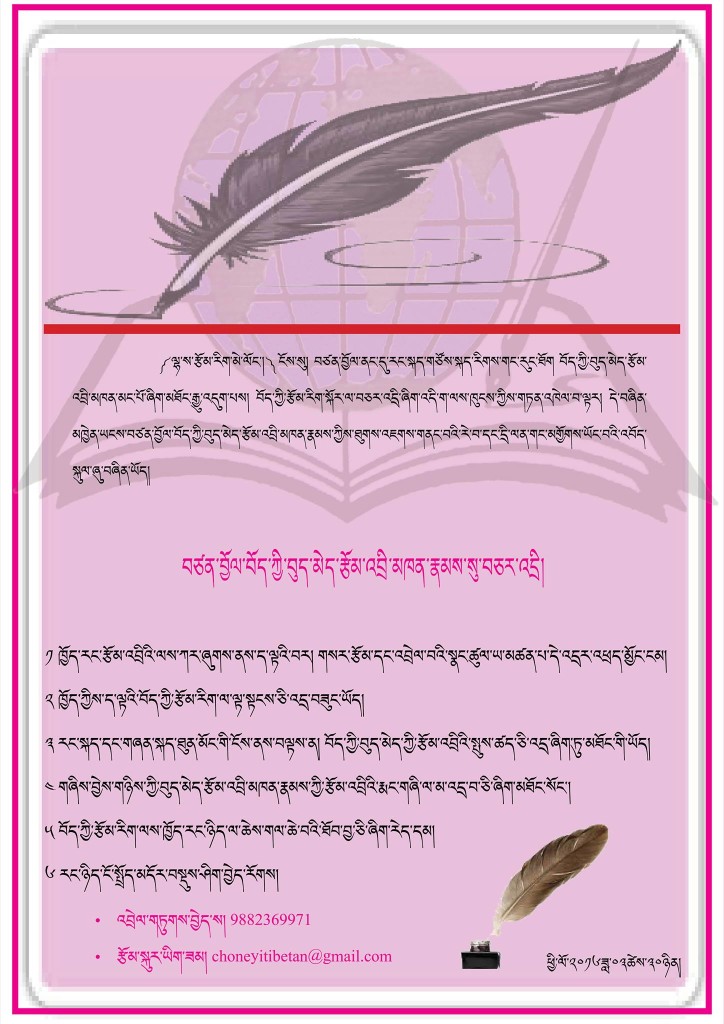 ༼ལྷ་ས་རྩོམ་རིག་མེ་ལོང་།༽ ངོས་སུ། བཙན་བྱོལ་ནང་དུ་རང་སྐད་གཙོས་སྐད་རིགས་གང་རུང་ཐོག བོད་ཀྱི་བུད་མེད་རྩོམ་
འབྲི་མཁན་མང་པོ་ཞིག་མཐོང་རྒྱུ་འདུག་པས། བོད་ཀྱི་རྩོམ་རིག་སྐོར་ལ་བཅར་འདྲི་ཞིག་འདི་ག་ལས་ཁུངས་ཀྱིས་གཏན་འཁེལ་བ་ལྟར། དེ་བཞིན་
མཁྱེན་ཡངས་བཙན་བྱོལ་བོད་ཀྱི་བུད་མེད་རྩོམ་འབྲི་མཁན་རྣམས་ཀྱིས་ཐུགས་འཇགས་གནང་བའི་རེ་བ་དང་དྲི་ལན་གང་མགྱོགས་ཡོང་བའི་འབོད་
སྐུལ་ཞུ་བཞིན་ཡོད།
བཙན་བྱོལ་བོད་ཀྱི་བུད་མེད་རྩོམ་འབྲི་མཁན་རྣམས་སུ་བཅར་འདྲི།
༡ ཁྱོད་རང་རྩོམ་འབྲིའི་ལས་ཀར་ཞུགས་ནས་ད་ལྟའི་བར། གསར་རྩོམ་དང་འབྲེལ་བའི་སྣང་ཚུལ་ཡ་མཚན་པ་དེ་འདྲར་འཕྲད་མྱོང་ངམ།
༢ ཁྱོད་ཀྱིས་ད་ལྟའི་བོད་ཀྱི་རྩོམ་རིག་ལ་ལྟ་སྟངས་ཅི་འདྲ་བཟུང་ཡོད།
༣ རང་སྐད་དང་གཞན་སྐད་ཐུན་མོང་གི་ངོས་ནས་བལྟས་ན། བོད་ཀྱི་བུད་མེད་ཀྱི་རྩོམ་འབྲིའི་སྤུས་ཚད་ཅི་འདྲ་ཞིག་ཏུ་མཐོང་གི་ཡོད།
༤ གཞིས་བྱེས་གཉིས་ཀྱི་བུད་མེད་རྩོམ་འབྲི་མཁན་རྣམས་ཀྱི་རྩོམ་འབྲིའི་རྨང་གཞི་ལ་མ་འདྲ་བ་ཅི་ཞིག་མཐོང་སོང་།
༥ བོད་ཀྱི་རྩོམ་རིག་ལས་ཁྱོད་རང་ཉིད་ལ་ཆེས་གལ་ཆེ་བའི་ཐོབ་བྱ་ཅི་ཞིག་རེད་དམ།
༦ རང་ཉིད་ངོ་སྤྲོད་མདོར་བསྡུས་ཤིག་བྱེད་རོགས།
• འབྲེལ་གཏུགས་བྱེད་ས། 9882369971
• རྩོམ་སྐུར་ཡིག་ཟམ། choneyitibetan@gmail.com
ཕྱི་ལོ་༢༠༡༦ཟླ་༠༣ཚེས་༣༠ཉིན།